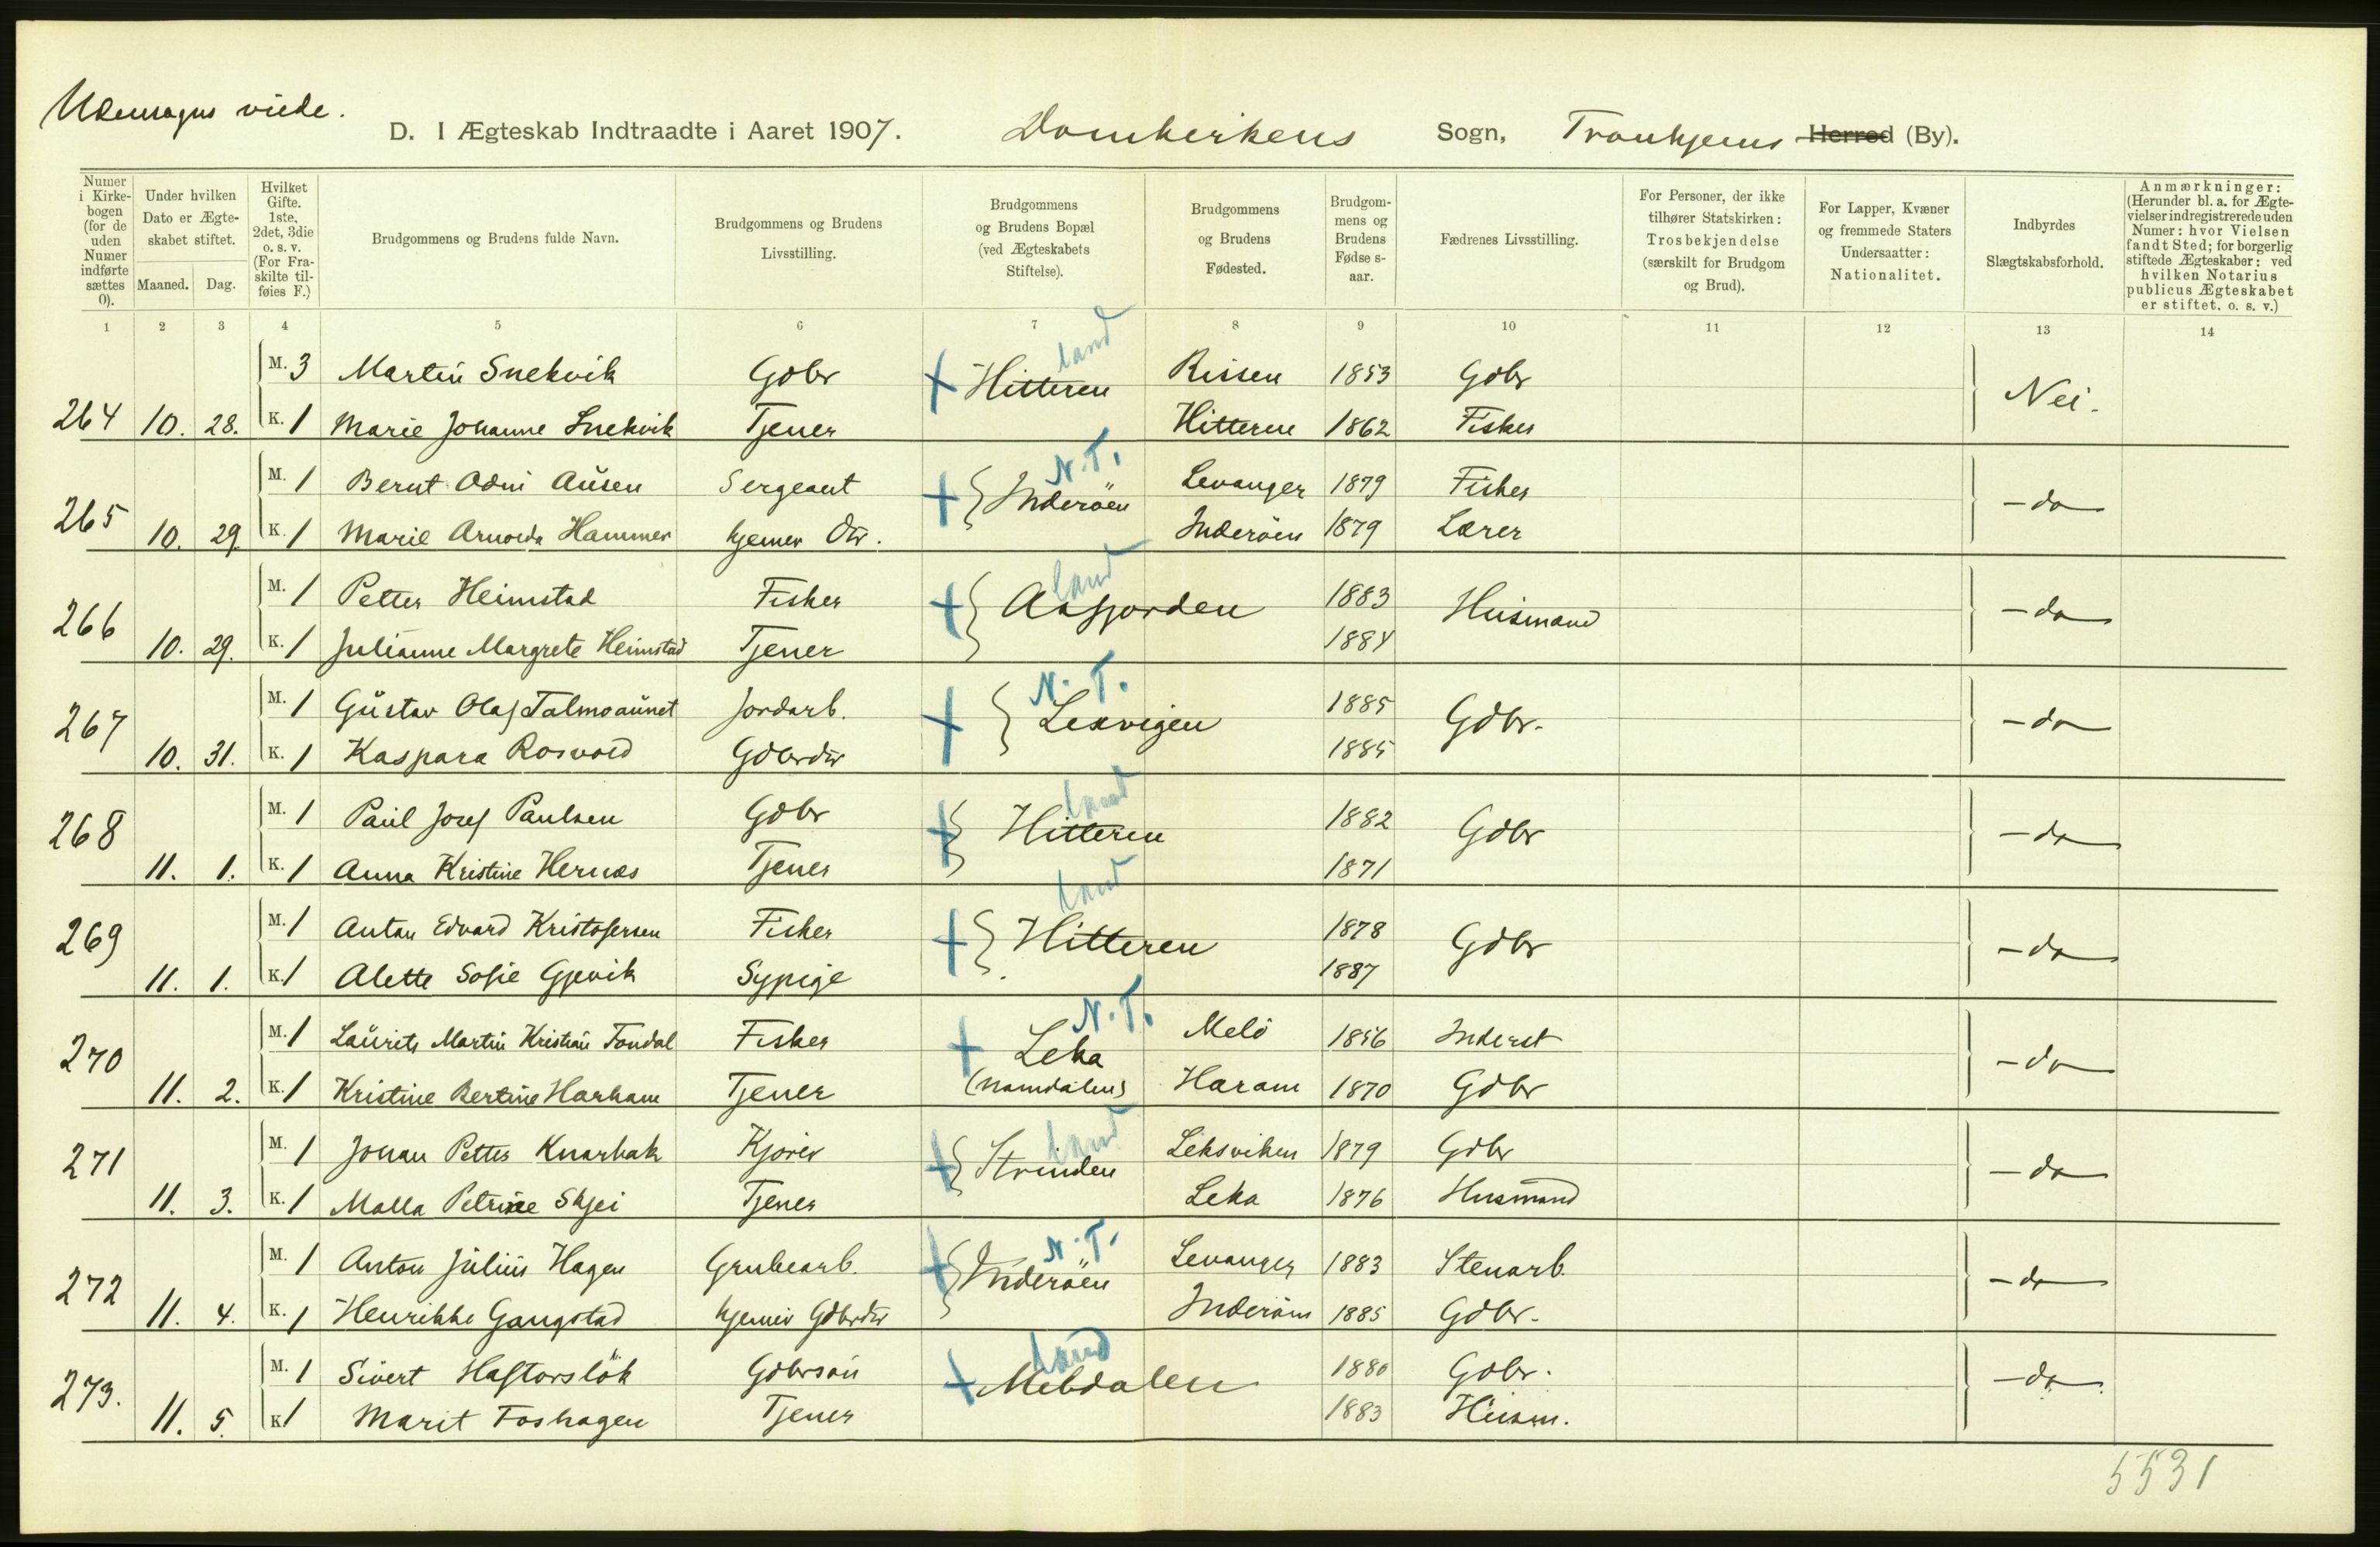 Udensogns viede.
D. I Ægteskab Indtraadte i Aaret 1907. Domkirkens Sogn, Tronhjems Herred (By).
Numer i Kirkebogen (for de uden Numer indførte sættes 0). | Under hvilken Dato er Ægteskabet stiftet. Maaned. Dag. | Hvilket Gifte. 1ste, 2det, 3die o. s. v. (For Fraskilte tilføies F.) | Brudgommens og Brudens fulde Navn. | Brudgommens og Brudens Livsstilling. | Brudgommens og Brudens Bopæl (ved Ægteskabets Stiftelse). | Brudgommens og Brudens Fødested. | Brudgommens og Brudens Fødse s-aar. | Fædrenes Livsstilling. | For Personer, der ikke tilhører Statskirken: Trosbekjendelse (særskilt for Brudgom og Brud). | For Lapper, Kvæner og fremmede Staters Undersaatter: Nationalitet. | Indbyrdes Slægtskabsforhold. | Anmærkninger: (Herunder bl. a. for Ægtevielser indregistrerede uden Numer: hvor Vielsen fandt Sted; for borgerlig stiftede Ægteskaber: ved hvilken Notarius publicus Ægteskabet er stiftet. o. s. v.)
1 2 3 4 5 6 7 8 9 10 11 12 13 14
M. 3 Martin Snekvik Gdbr + Hitteren land Rissen 1853 Gdbr Nei.
264 10. 28. K. 1 Marie Johanne Snekvik Tjener Hitteren 1862 Fisker
M. 1 Bernt Odin Ausen Sergeant + Inderöen N.T. Levanger 1879 Fisker - do
265 10. 29. K. 1 Marie Arnolda Hammer hjemmev Dtr. Inderöen 1879 Lærer
M. 1 Petter Heimstad Fisker + Aafjorden land 1883 Husmand - do
266 10. 29. K. 1 Julianne Margrete Heimstad Tjener 1884
M. 1 Gustav Olaf Talmoaunet Jordarb. + Lexvigen N.T. 1885 Gdbr. - do
267 10. 31. K. 1 Kaspara Rosvold Gdbrdtr 1885
M. 1 Paul Josef Paulsen Gdbr + Hitteren land 1882 Gdbr - do
268 11. 1. K. 1 Anna Kristine Hernæs Tjener 1871
M. 1 Anton Edvard Kristofersen Fisker + Hitteren land 1878 Gdbr - do
269 11. 1. K. 1 Alette Sofie Gjevik Sypige 1887
M. 1 Laurits Martin Kristian Tondal Fisker + Leka N.T. Melö 1856 Inderst - do
270 11. 2. K. 1 Kristine Bertine Harham Tjener (Namdalens) Haram 1870 Gdbr
M. 1 Johan Petter Knarbak Kjörer + Strinden land Leksviken 1879 Gdbr - do
271 11. 3. K. 1 Malla Petrine Skjei Tjener Leka 1876 Husmand
M. 1 Anton Julius Hagen Grubearb. + Inderöen N.T. Levanger 1883 Stenarb. - do
272 11. 4. K. 1 Henrikke Gangstad hjemmev Gdbrdtr Inderöen 1885 Gdbr.
M. 1 Sivert Haftorslök Gdbrsön + Meldalen land 1880 Gdbr. - do
273. 11. 5. K 1 Marit Foshagen Tjener 1883 Husm.
5531